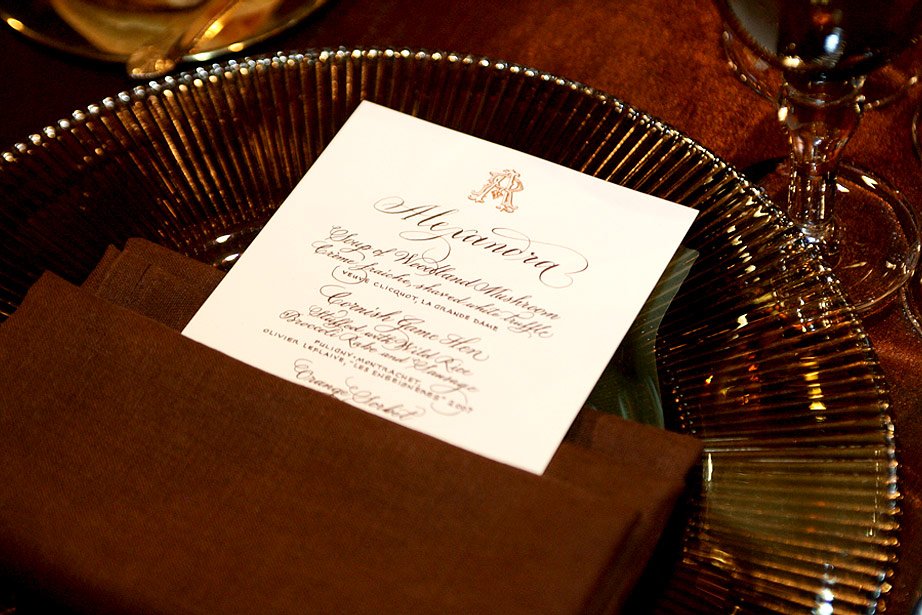 Alexandra
Soup of Woodland Mushroom
Crème fraîche, shaved white truffle
VEUVE CLICQUOT, LA GRANDE DAME
Cornish Game Hen
Stuffed with Wild Rice
Broccoli Rabe and Sausage
PULIGNY-MONTRACHET,
OLIVIER LEFLAIVE, "LES ENSEIGNÈRES" 2007
Orange Sorbet